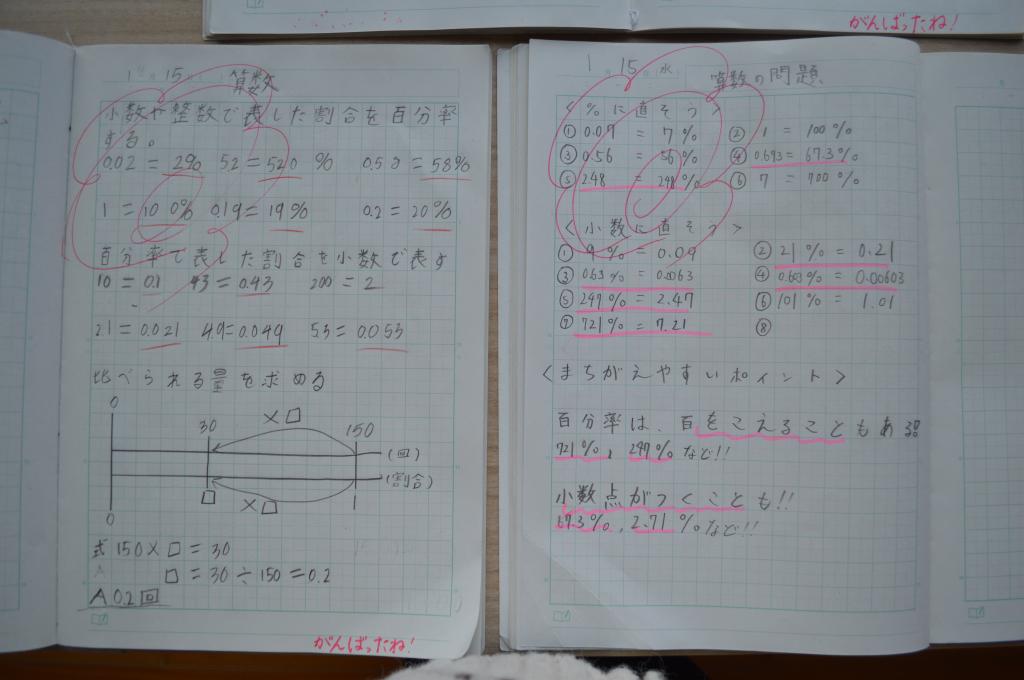 がんばったね!
1 15 算数
小数や整数で表した割合を百分率
する。
0.02 = 2% 5.2 = 520 % 0.58 = 58%
1 = 100% 0.19 = 19% 0.2 = 20%
百分率で表した割合を小数で表す
10 = 0.1 43 = 0.43 200 = 2
2.1 = 0.021 4.9 = 0.049 5.3 = 0.053
比べられる量を求める
0
×□
30 150
(回)
(割合)
□ 1
×□
0
式 150 × □ = 30
□ = 30 ÷ 150 = 0.2
A 0.2回
がんばったね!
1 15 水 算数の問題
<%に直そう>
① 0.07 = 7% ② 1 = 100%
③ 0.56 = 56% ④ 0.673 = 67.3%
⑤ 2.48 = 248% ⑥ 7 = 700%
<小数に直そう>
① 9% = 0.09 ② 21% = 0.21
③ 0.63% = 0.0063 ④ 0.603% = 0.00603
⑤ 247% = 2.47 ⑥ 101% = 1.01
⑦ 721% = 7.21 ⑧
<まちがえやすいポイント>
百分率は、百をこえることもある!!
721%, 247%など!!
小数点がつくことも!!
67.3%, 2.71%など!!